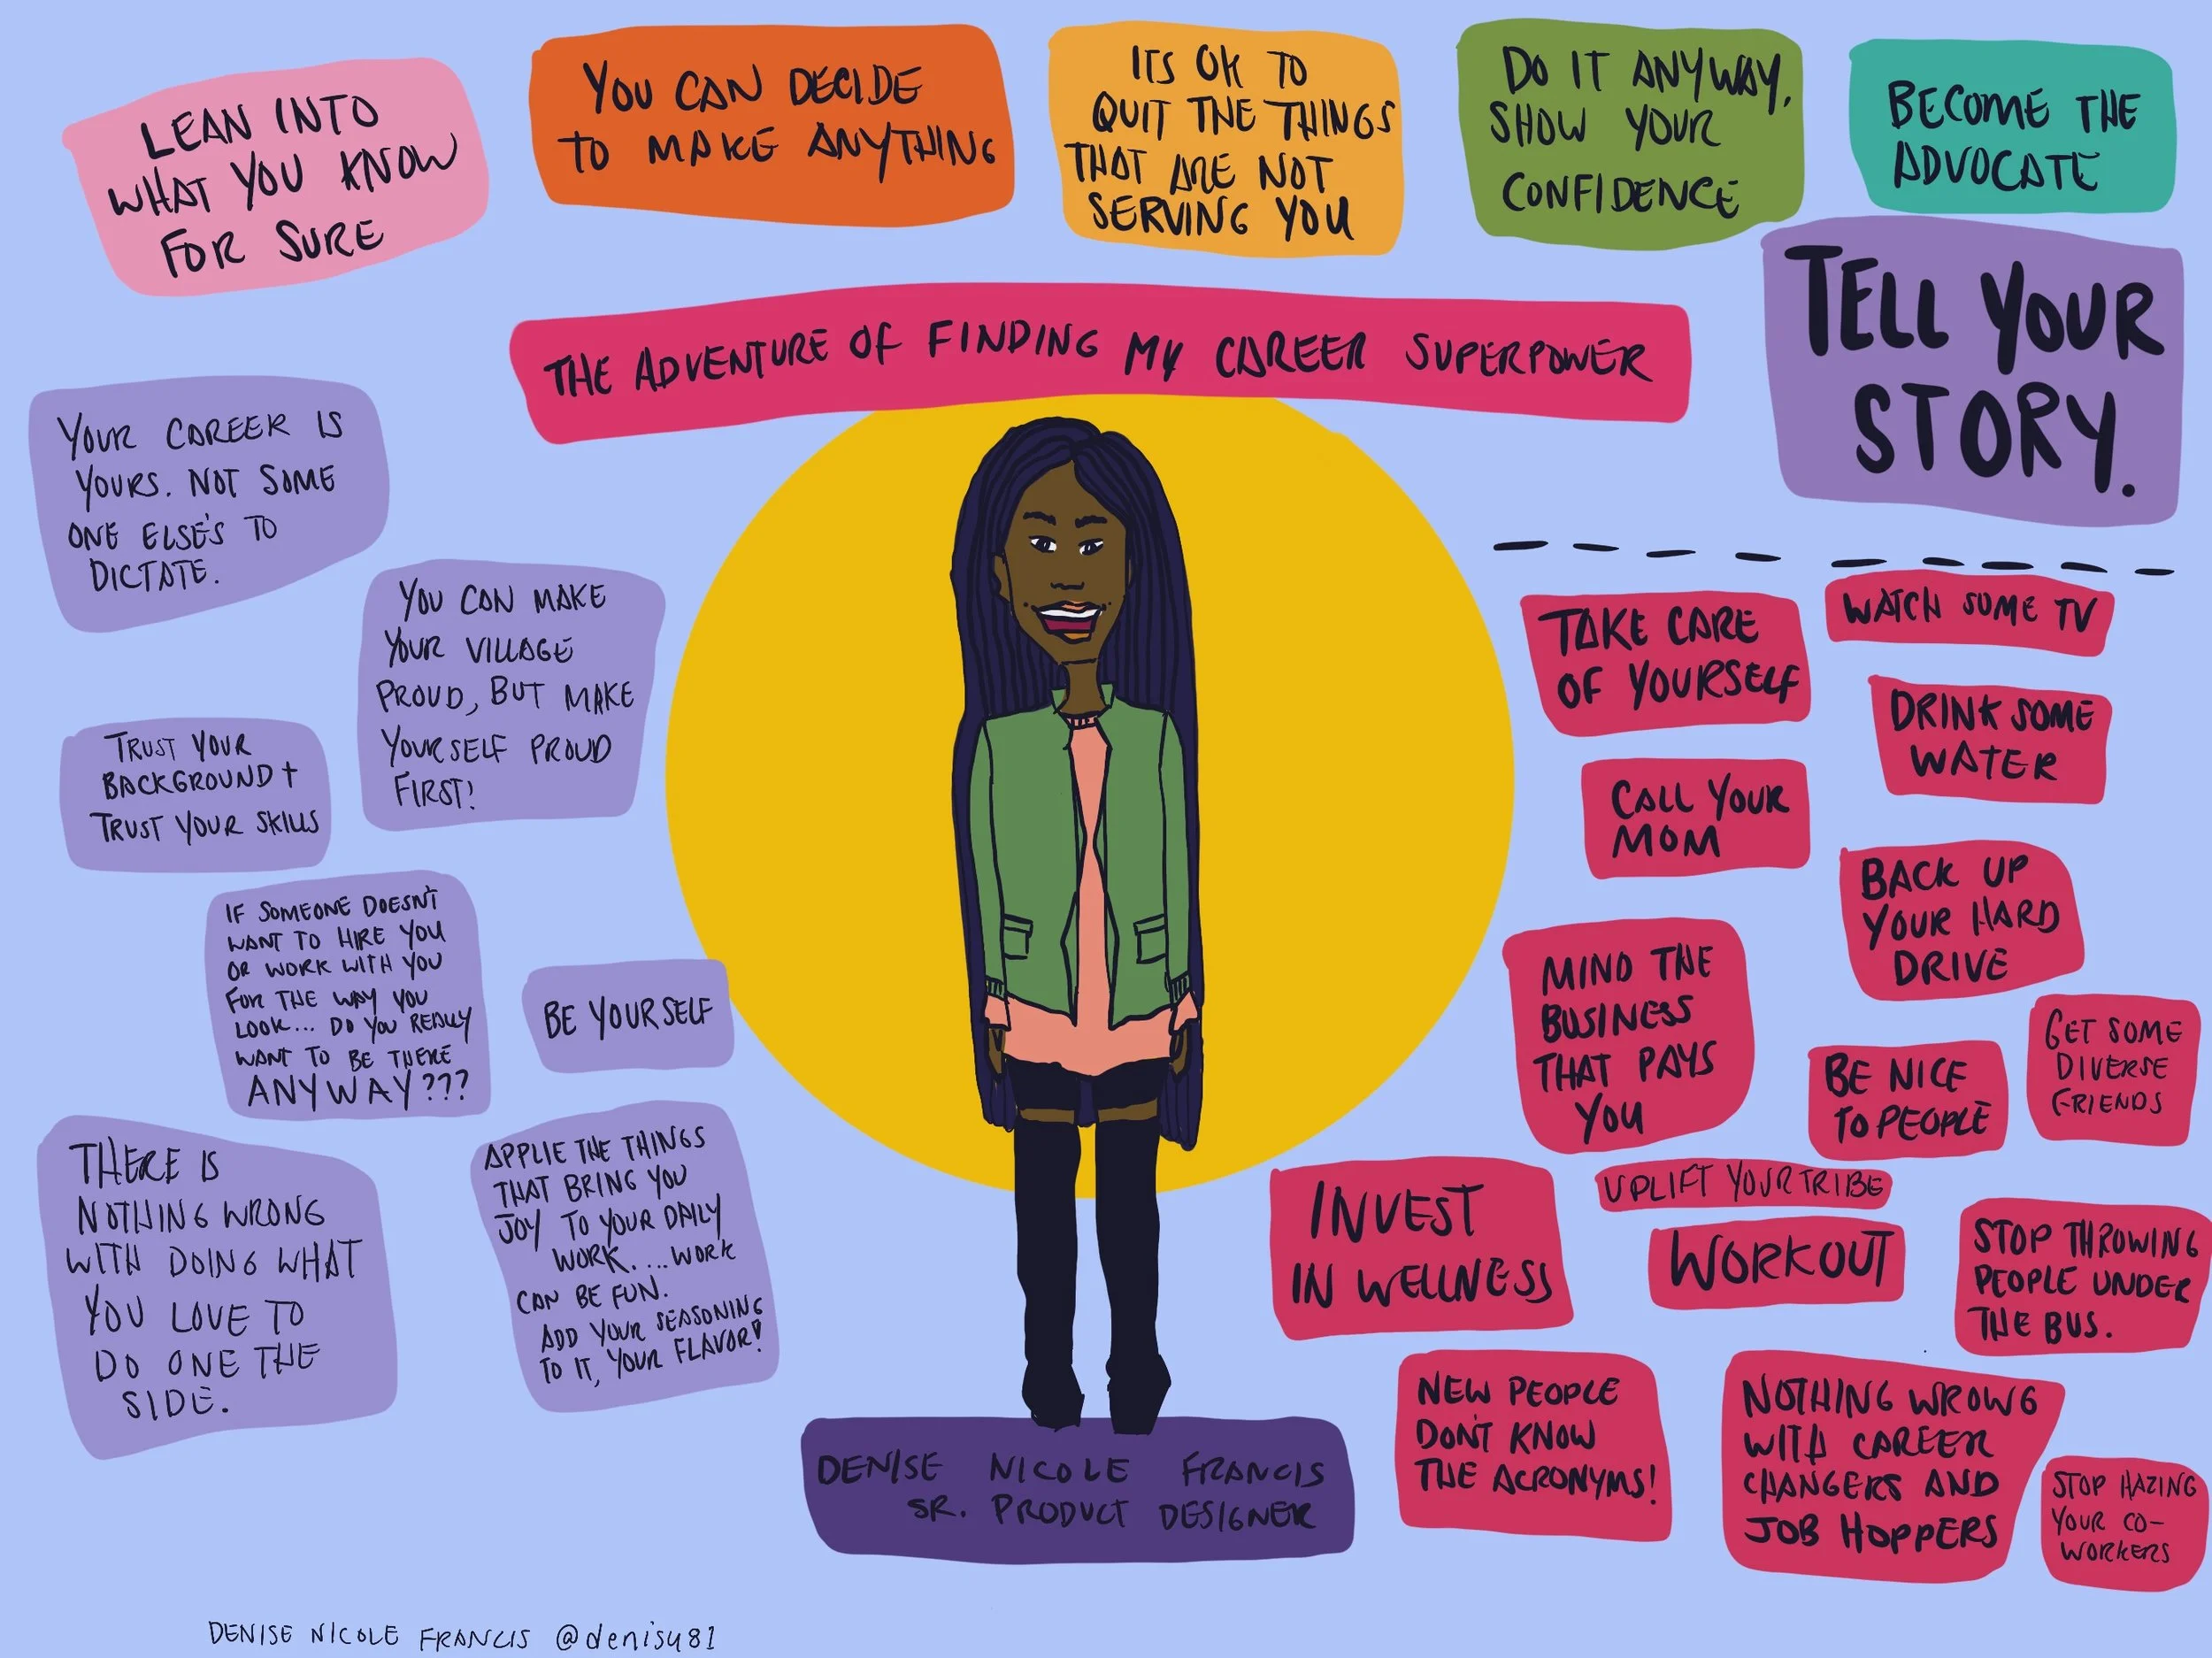 LEAN INTO
WHAT YOU KNOW
FOR SURE
YOU CAN DECIDE
TO MAKE ANYTHING
ITS OK TO
QUIT THE THINGS
THAT ARE NOT
SERVING YOU
DO IT ANYWAY,
SHOW YOUR
CONFIDENCE
BECOME THE
ADVOCATE
TELL YOUR
STORY.
THE ADVENTURE OF FINDING MY CAREER SUPERPOWER
YOUR CAREER IS
YOURS. NOT SOME
ONE ELSE'S TO
DICTATE.
YOU CAN MAKE
YOUR VILLAGE
PROUD, BUT MAKE
YOURSELF PROUD
FIRST!
TRUST YOUR
BACKGROUND +
TRUST YOUR SKILLS
IF SOMEONE DOESN'T
WANT TO HIRE YOU
OR WORK WITH YOU
FOR THE WAY YOU
LOOK... DO YOU REALLY
WANT TO BE THERE
ANYWAY???
BE YOURSELF
THERE IS
NOTHING WRONG
WITH DOING WHAT
YOU LOVE TO
DO ONE THE
SIDE.
APPLIE THE THINGS
THAT BRING YOU
JOY TO YOUR DAILY
WORK....WORK
CAN BE FUN.
ADD YOUR SEASONING
TO IT, YOUR FLAVOR!
TAKE CARE
OF YOURSELF
WATCH SOME TV
DRINK SOME
WATER
CALL YOUR
MOM
BACK UP
YOUR HARD
DRIVE
MIND THE
BUSINESS
THAT PAYS
YOU
BE NICE
TO PEOPLE
GET SOME
DIVERSE
FRIENDS
INVEST
IN WELLNESS
UPLIFT YOUR TRIBE
WORKOUT
STOP THROWING
PEOPLE UNDER
THE BUS.
NEW PEOPLE
DON'T KNOW
THE ACRONYMS!
NOTHING WROWG
WITH CAREER
CHANGERS AND
JOB HOPPERS
STOP HAZING
YOUR CO-
WORKERS
DENISE NICOLE FRANCIS
SR. PRODUCT DESIGNER
DENISE NICOLE FRANCIS @denisy81